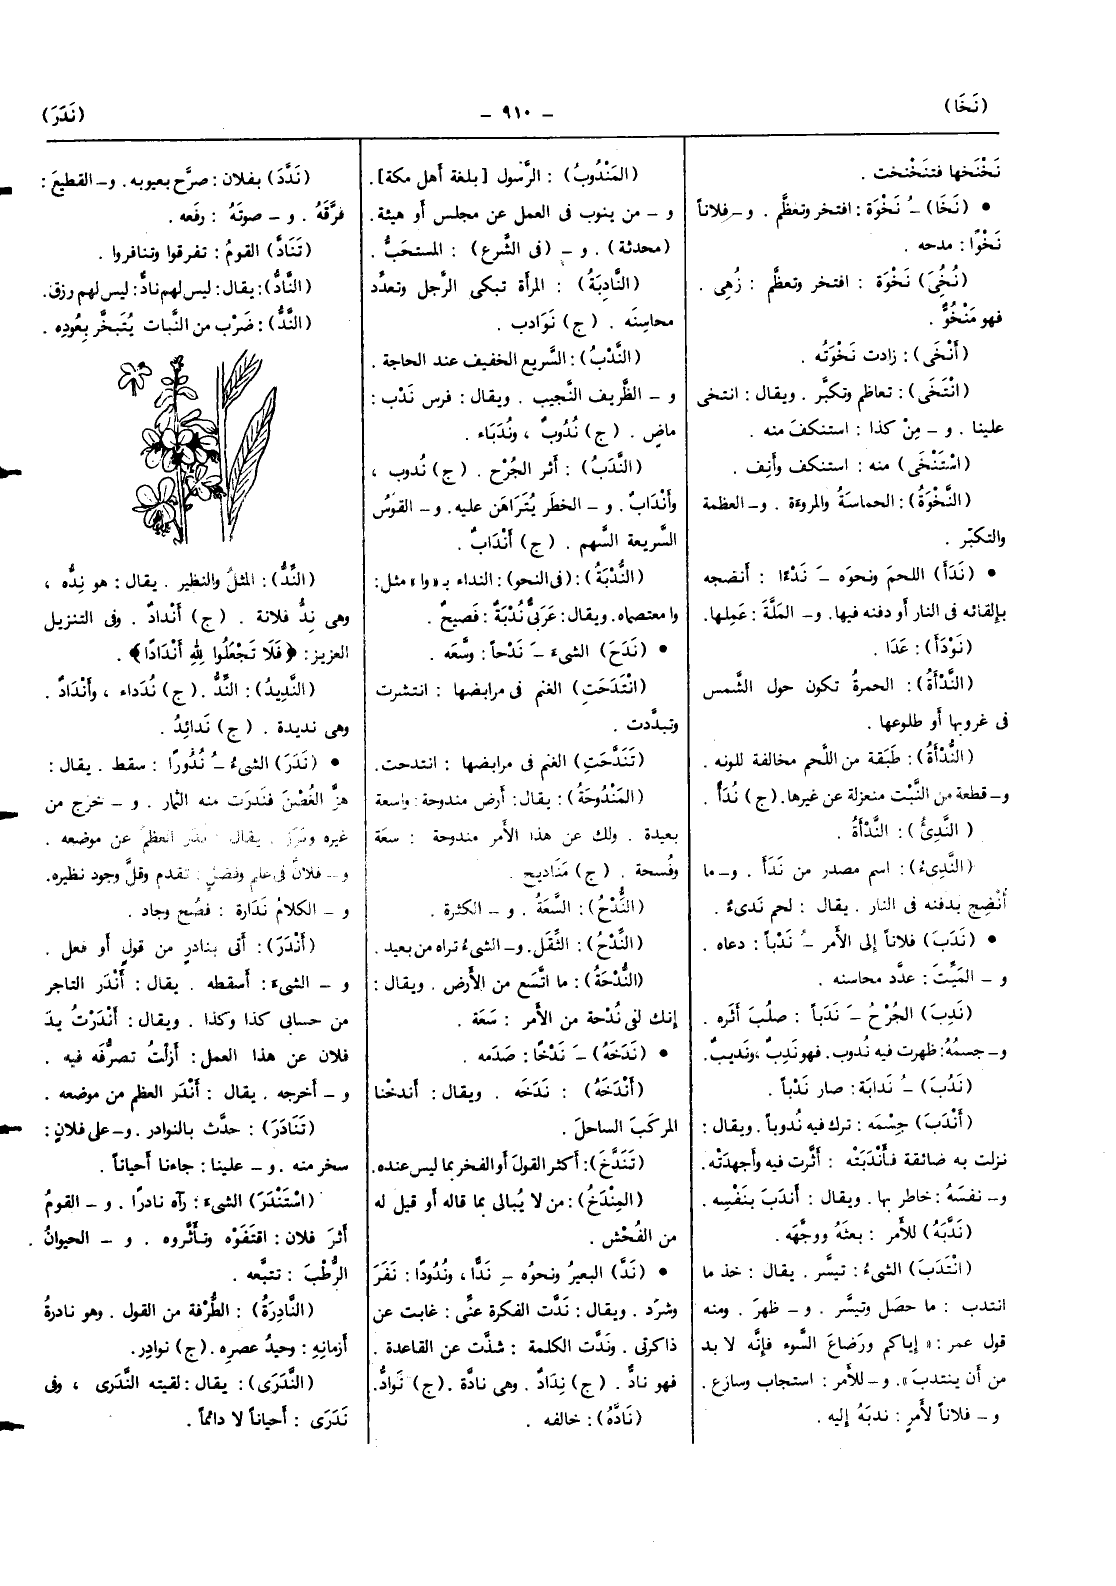 (نَخَا)
- ٩١٠ -
(نَدَرَ)
نَخْنَخها فتنَخْنخت .
• (نَخَا) ـُ نَخْوَة : افتخر وتعظَّم . و ـ فلاناً
نَخْوًا : مدحه .
(نُخِىَ) نَخْوَة : افتخر وتعظَّم : زُهِى .
فهو مَنْخُوٌّ .
(أَنْخَى) : زادت نَخْوَتُه .
(انْتَخَى) : تعاظم وتكبَّر . ويقال : انتخى
علينا . و ـ مِنْ كذا : استنكفَ منه .
(اسْتَنْخَى) منه : استنكف وأَنِف .
(النَّخْوَةُ) : الحماسَةُ والمروءَة . و ـ العظمة
والتكبّر .
• (نَدَأَ) اللحمَ ونحوَه ـَ نَدْءًا : أنضجه
بإلقائه فى النار أو دفنه فيها. و ـ المَلَّةَ : عَمِلها.
(نَوْدَأَ) : عَدَا .
(النَّدْأَةُ) : الحمرةُ تكون حول الشَّمس
فى غروبها أو طلوعها .
(النُّدْأَةُ) : طَبَقة من اللَّحم مخالفة للونه .
و ـ قطعة من النَّبْت منعزلة عن غيرها. (ج) نُدَأٌ .
( النَّدِئُ ) : النَّدْأَةُ .
(النَّدِىءُ) : اسم مصدر من نَدَأَ . و ـ ما
أُنْضِج بدفنه فى النار . يقال : لحم نَدىءٌ .
• (نَدَبَ) فلاناً إلى الأمر ـُ نَدْباً : دعاه .
و ـ المَيِّتَ : عدَّد محاسنه .
(نَدِبَ) الجُرْحُ ـَ نَدَباً : صلُبَ أثَره .
و ـ جسمُهُ: ظهرت فيه نُدوب. فهو نَدِبٌ ، ونَديبٌ.
(نَدُبَ) ـُ نَدابَة : صار نَدْباً .
(أَنْدَبَ) جِسْمَه : ترك فيه نُدوباً . ويقال :
نزلت به ضائقة فأَنْدَبَتْه : أثَّرت فيه وأجهدَتْه.
و ـ نفسَهُ : خاطر بها . ويقال : أَندَبَ بنَفْسِه .
(نَدَّبَهُ) للأمر : بعثَهُ ووجَّهَه .
(انْتَدَبَ) الشىءُ : تيسَّر . يقال : خذ ما
انتدب : ما حصَل وتيسَّر . و ـ ظهرَ . ومنه
قول عمر : « إياكم ورَضاعَ السَّوء فإنَّه لا بد
من أن ينتدبَ ». و ـ للأمر : استجاب وسارع .
و ـ فلاناً لأمرٍ : ندبَهُ إليه .
(المَنْدُوبُ) : الرَّسُول [ بلغة أهل مكة ].
و ـ من ينوب فى العمل عن مجلس أو هيئة .
(محدثة) . و ـ (فى الشَّرع) : المستحَبُّ .
(النَّادِبَةُ) : المرأة تبكى الرَّجل وتعدِّد
محاسِنَه . (ج) نَوَادب .
(النَّدْبُ) : السَّريع الخفيف عند الحاجة .
و ـ الظَّريف النَّجيب . ويقال : فرس نَدْب :
ماضٍ . (ج) نُدُوبٌ ، ونُدَبَاء .
(النَّدَبُ) : أثر الجُرْح . (ج) نُدوب ،
وأَنْدَابٌ . و ـ الخطَر يُتَرَاهَن عليه. و ـ القوسُ
السَّريعة السَّهم . (ج) أَنْدَابٌ .
(النُّدْبَةُ) : (فى النحو) : النداء بـ «وا» مثل :
وا معتصماه. ويقال : عَرَبىٌّ نُدْبَةٌ : فَصيحٌ .
• (نَدَحَ) الشىءَ ـَ نَدْحاً : وسَّعَه .
(انْتَدَحَتِ) الغنم فى مرابضها : انتشرت
وتبدَّدت .
(تَنَدَّحَتِ) الغنم فى مرابضها : انتدحت.
(المَنْدُوحَةُ) : يقال : أرض مندوحة : واسعة
بعيدة . ولك عن هذا الأمر مندوحة : سعَة
وفُسحة . (ج) مَنَادِيح .
(النُّدْحُ) : السَّعَةُ . و ـ الكثرة .
(النِّدْحُ) : الثِّقَل. و ـ الشىءُ تراه من بعيد .
(النُّدْحَةُ) : ما اتَّسَع من الأَرض . ويقال :
إنك لفى نُدْحة من الأمر : سَعَة .
• (نَدَخَهُ) ـَ نَدْخًا : صَدَمه .
(أَنْدَخَهُ) : نَدَخَه . ويقال : أندخْنا
المركَبَ الساحلَ .
(تَنَدَّخَ) : أكثر القولَ أو الفخر بما ليس عنده.
(المِنْدَخُ) : من لا يُبالى بما قاله أو قيل له
من الفُحْش .
• (نَدَّ) البعيرُ ونحوُه ـِ نَدًّا ، ونُدُودًا : نَفَرَ
وشرَد . ويقال : نَدَّت الفكرة عنِّى : غابت عن
ذاكرتى . ونَدَّت الكلمة : شذَّت عن القاعدة .
فهو نادٌّ . (ج) نِدَادٌ . وهى نادَّة .(ج) نَوادُّ.
(نَادَّهُ) : خالفه .
(نَدَّدَ) بفلان : صرَّح بعيوبه. و ـ القطيعَ :
فرَّقهُ . و ـ صوتَهُ : رفَعه .
(تَنَادَّ) القومُ : تفرقوا وتنافروا .
(النَّادُّ) : يقال : ليس لهم نادٌّ : ليس لهم رزق.
(النَّدُّ) : ضَرْب من النَّبات يُتَبخَّر بِعُودِه .
(النِّدُّ) : المثلُ والنظير . يقال : هو نِدُّه ،
وهى نِدُّ فلانة . (ج) أَنْدادٌ . وفى التنزيل
العزيز : ﴿ فَلَا تَجْعَلُوا لِلّهِ أَنْدَادًا ﴾ .
(النَّدِيدُ) : النِّدُّ . (ج) نُدَداء ، وأَنْدَادٌ .
وهى نديدة . (ج) نَدائِدُ .
• (نَدَرَ) الشىءُ ـُ نُدُوراً : سقط . يقال :
هزَّ الغُصْنَ فنَدرَت منه الثمار . و ـ خرج من
غيره وبَرَز . يقال : نَدَرَ العظمُ عن موضعه .
و ـ فلانٌ فى علم وفضلٍ : تقدم وقلَّ وجود نظيره.
و ـ الكلامُ نَدَارة : فصُح وجاد .
(أَنْدَرَ) : أتى بنادرٍ من قولٍ أو فعل .
و ـ الشىءَ : أسقطه . يقال : أَنْدَر التاجر
من حسابى كذا وكذا . ويقال : أَنْدَرْتُ يدَ
فلان عن هذا العمل : أزلْتُ تصرُّفَه فيه .
و ـ أخرجه . يقال : أَنْدَر العظم من موضعه .
(تَنَادَرَ) : حدَّث بالنوادر . و ـ على فلانٍ :
سخر منه . و ـ علينا : جاءنا أحياناً .
(اسْتَنْدَرَ) الشىءَ : رآه نادرًا . و ـ القومُ
أثرَ فلان : اقتَفَوْه وتأثَّروه . و ـ الحيوانُ
الرُّطْبَ : تتبَّعه .
(النَّادِرَةُ) : الطُّرْفة من القول . وهو نادرةُ
أزمانِهِ : وحيدُ عصره .(ج) نوادِر.
(النَّدَرَى) : يقال : لقيته النَّدَرَى ، وفى
نَدَرَى : أحياناً لا دائماً .